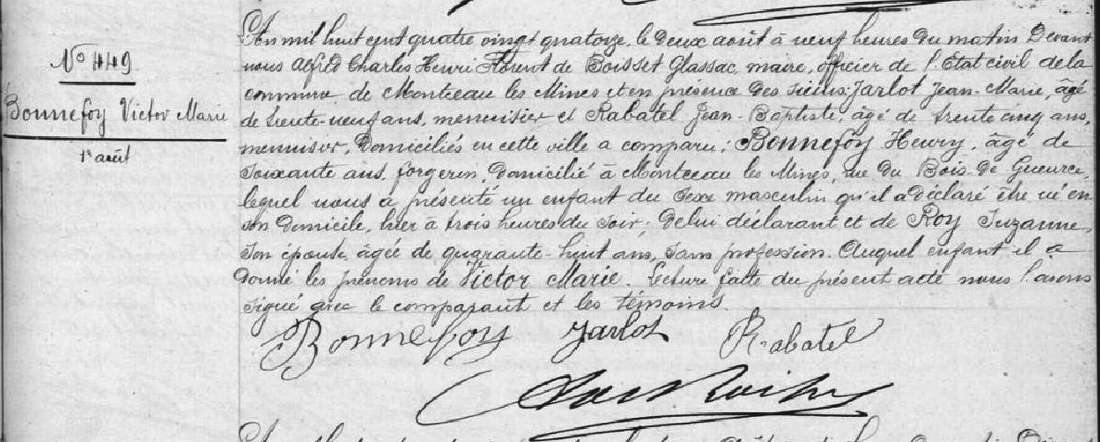 N° 449
Bonnefoy Victor Marie
1er août
L'an mil huit cent quatre vingt quatorze, le deux août à neuf heures du matin Devant
nous Alfred Charles Henri Florent de Boisset Glassac, maire, officier de l'Etat civil de la
commune de Montceau les Mines et en présence des sieurs Jarlot Jean-Marie, âgé
de trente-neuf ans, menuisier et Rabatel Jean-Baptiste, âgé de trente cinq ans,
menuisier, domiciliés en cette ville a comparu: Bonnefoy Henry, âgé de
soixante ans, forgeron, domicilié à Montceau les Mines, rue du Bois de Gueurce,
lequel nous a présenté un enfant du sexe masculin qu'il a déclaré être né en
son domicile, hier à trois heures du soir; de lui déclarant et de Roy Suzanne,
son épouse, âgée de quarante-huit ans, sans profession. Auquel enfant il a
donné les prénoms de Victor Marie. Lecture faite du présent acte nous l'avons
signé avec le comparant et les témoins.
Bonnefoy Jarlot Rabatel